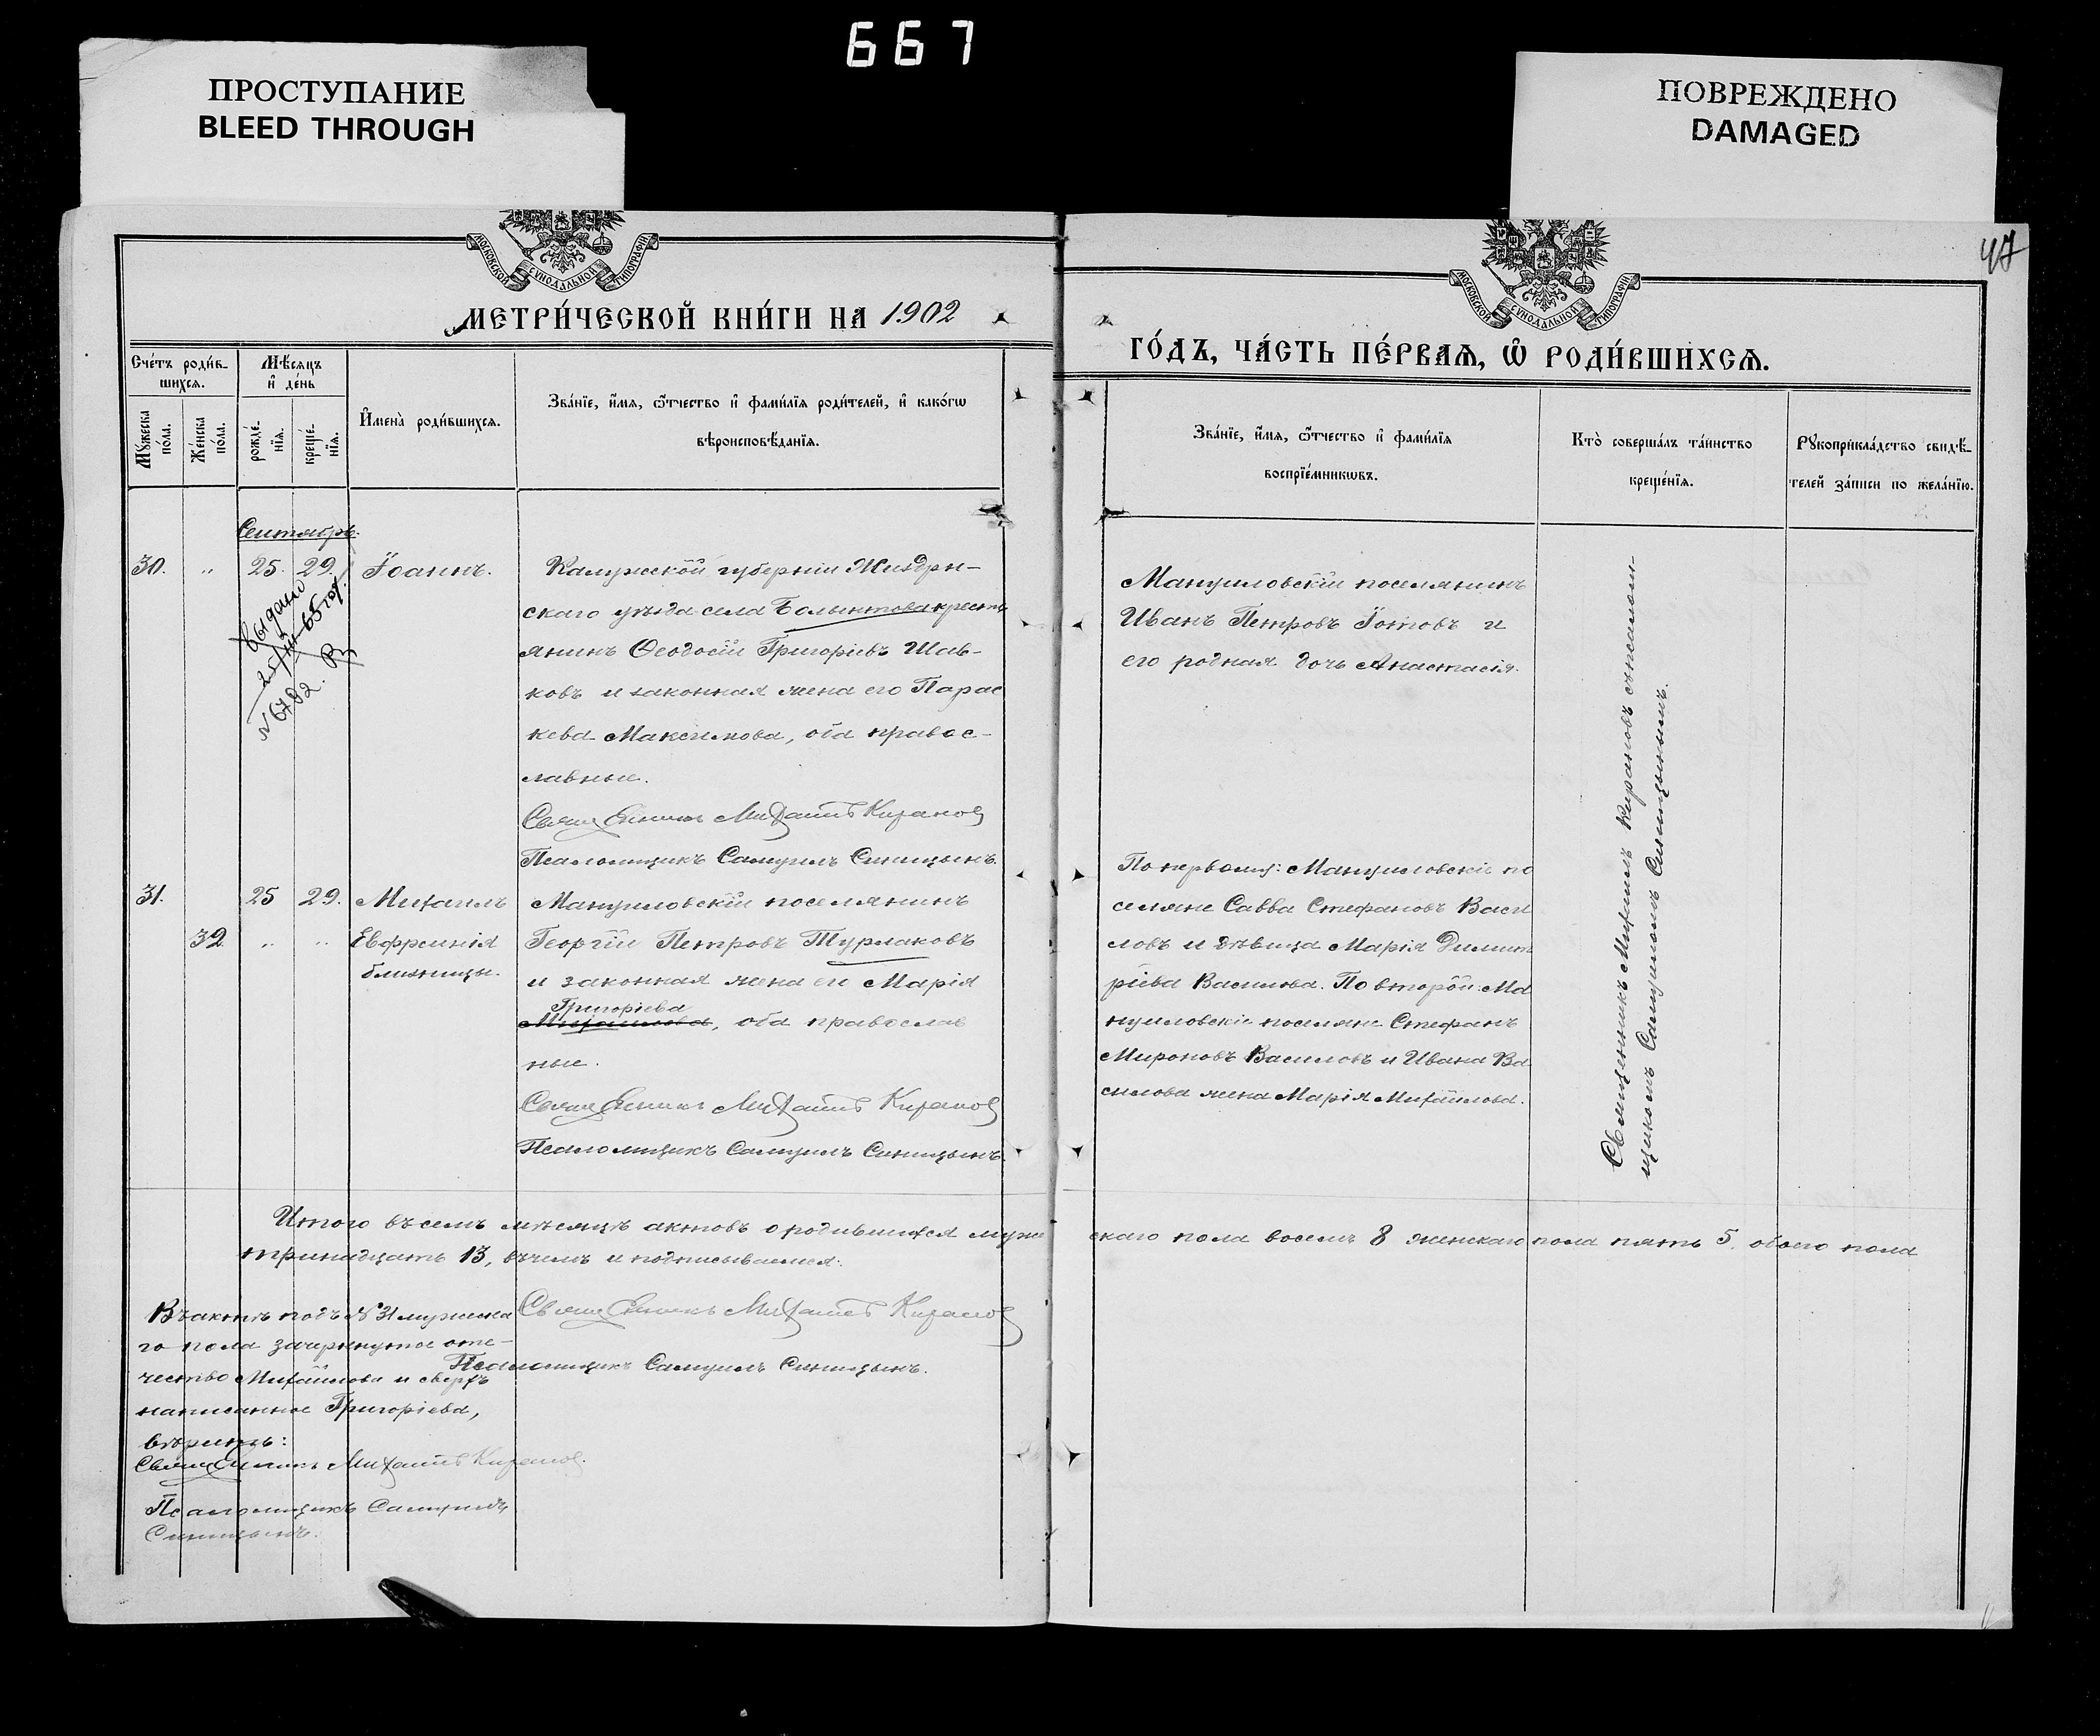 667
ПРОСТУПАНИЕ
BLEED THROUGH
ПОВРЕЖДЕНО
DAMAGED
МОСКОВСКОЙ СѴНОДАЛЬНОЙ ТИПОГРАФІИ
МОСКОВСКОЙ СѴНОДАЛЬНОЙ ТИПОГРАФІИ
47
МЕТРИ́ЧЕСКОЙ КНИ́ГИ НА 1902
ГО́ДЪ, ЧА́СТЬ ПЕ́РВАѦ, Ѡ҆ РОДИ́ВШИХСѦ.
Сче́тъ роди́в-
шихсѧ.
Мꙋ́жеска по́ла.
Же́нска по́ла.
Мѣ́сѧцъ
и҆ де́нь
рожде́-
нїѧ.
креще́-
нїѧ.
И҆мена̀ роди́вшихсѧ.
Зва́нїе, и҆́мѧ, ѻ҆́тчество и҆ фами́лїѧ роди́телей, и҆ како́гѡ
вѣроисповѣ́данїѧ.
Зва́нїе, и҆́мѧ, ѻ҆́тчество и҆ фами́лїѧ
воспрїе́мникѡвъ.
Кто̀ соверша́лъ та́инство
креще́нїѧ.
Рꙋкоприкла́дство свидѣ́-
телей за́писи по жела́нїю.
Сентябрь.
30. „ 25. 29. Іоаннъ.
Выдано
25/III-65 г.
№ 6782.
Калужской губерніи Жиздрин-
скаго уѣзда села крестья
янинъ Ѳеодосій Григоріевъ Шав-
ковъ и законная жена его Парас
кева Максимова, оба правос-
лавные.
Священникъ Михаилъ Киранов
Псаломщикъ Самуилъ Синицынъ.
Мануиловскій поселянинъ
Иванъ Петровъ Іотовъ и
его родная дочь Анастасія.
31. 25 29. Михаилъ
32 „ „ Евфросинія
близнецы.
Мануиловскій поселянинъ
Георгій Петровъ Турлаковъ
и законная жена его Марія
Григоріева
Михаилова, оба православ
ные.
Священникъ Михаилъ Киранов
Псаломщикъ Самуилъ Синицынъ.
По первому: Мануиловскіе по
селяне Савва Стефановъ Васи
ловъ и дѣвица Марія Димит
ріева Василова. По второй: Ма
нуиловскіе поселяне Стефанъ
Мироновъ Василовъ и Ивана Ва
силова жена Марія Михайлова.
Священникъ Михаилъ Кирановъ съ псалом-
щикомъ Самуиломъ Синицынымъ.
Итого въ семъ мѣсяцѣ актовъ о родившихся муже
скаго пола восемь 8 женскаго пола пять 5. обоего пола
тринадцать 13, въ чемъ и подписываемся:
Священникъ Михаилъ Киранов
Псаломщикъ Самуилъ Синицынъ.
Въ актѣ подъ № 31 мужска
го пола зачеркнутое оте-
чество Михайлова и сверхъ
написанное Григоріева,
вѣримъ:
Священникъ Михаилъ Киранов.
Псаломщикъ Самуилъ
Синицынъ.